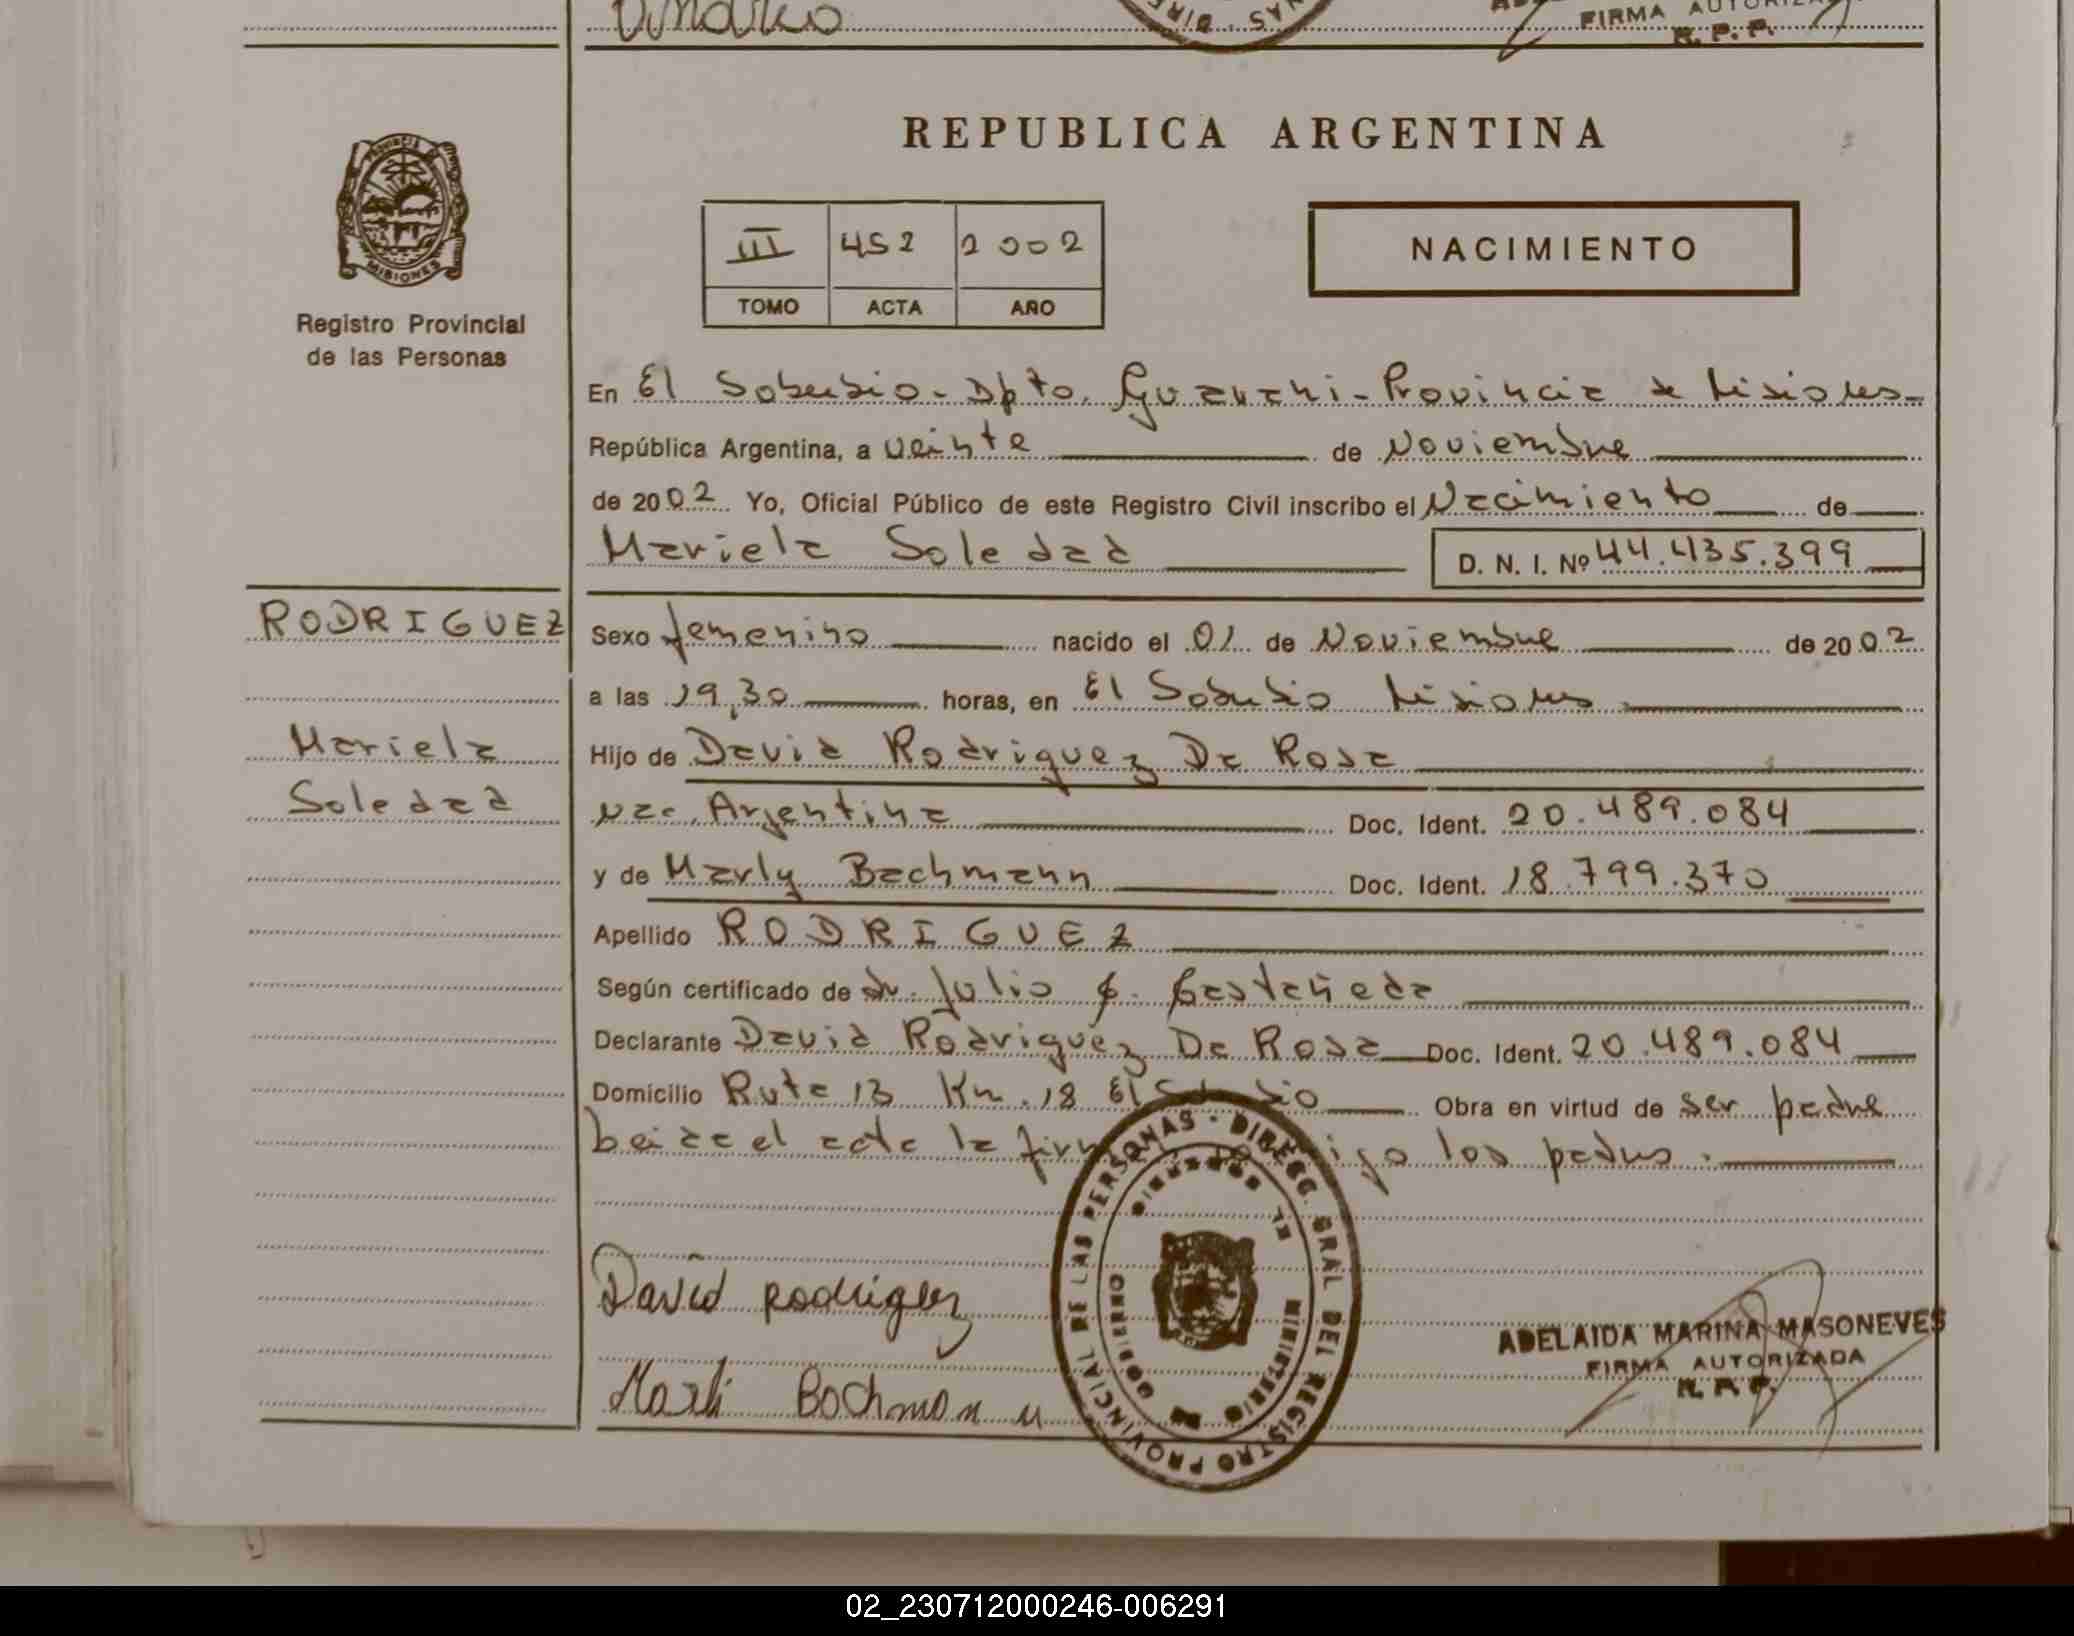 FIRMA AUTORIZADA
R. P. P.
REPUBLICA ARGENTINA
III 452 2002
TOMO ACTA AÑO
NACIMIENTO
PROVINCIA
MISIONES
Registro Provincial
de las Personas
En El Soberbio - Dpto. Guarani - Provincia de Misiones
República Argentina, a veinte de Noviembre
de 2002 Yo, Oficial Público de este Registro Civil inscribo el Nacimiento de
Mariela Soledad D. N. I. Nº 44.435.399
RODRIGUEZ
Mariela
Soledad
Sexo femenino nacido el 01 de Noviembre de 2002
a las 19,30 horas, en El Soberbio Misiones
Hijo de David Rodriguez Da Rosa
Nac. Argentina Doc. Ident. 20.489.084
y de Marly Bachmann Doc. Ident. 18.799.370
Apellido RODRIGUEZ
Según certificado de dr. Julio Castañeda
Declarante David Rodriguez Da Rosa Doc. Ident. 20.489.084
Domicilio Ruta 13 Km. 18 El Soberbio Obra en virtud de ser padre
Leida el acta la firman conmigo los padres.
David Rodriguez
Marli Bachmann
REGISTRO PROVINCIAL DE LAS PERSONAS - DIRECC. GRAL DEL
MINISTERIO DE GOBIERNO
MISIONES
ADELAIDA MARINA MASONEVES
FIRMA AUTORIZADA
R. P. P.
02_230712000246-006291